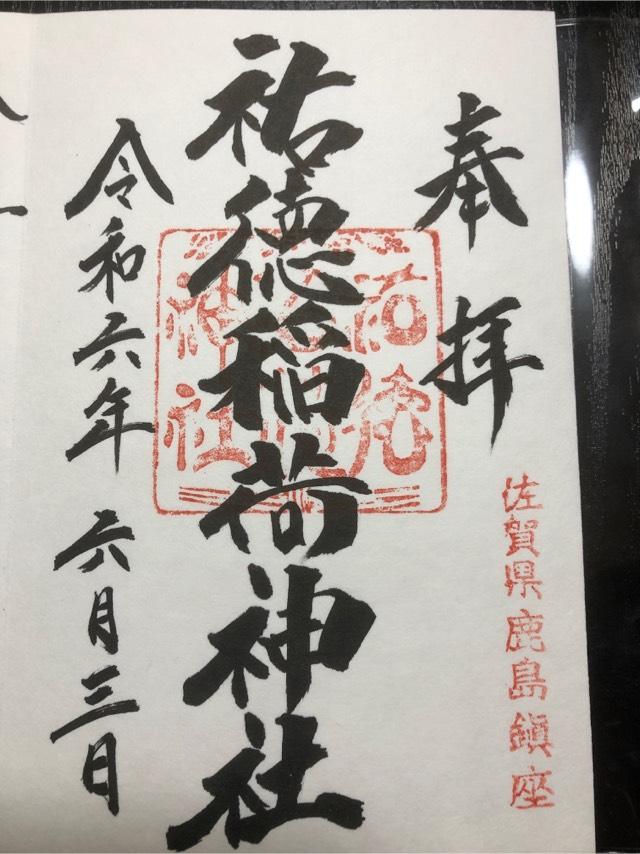 奉拝
佐賀県鹿島鎮座
祐徳稲荷神社
祐徳稲荷神社
令和六年 六月三日